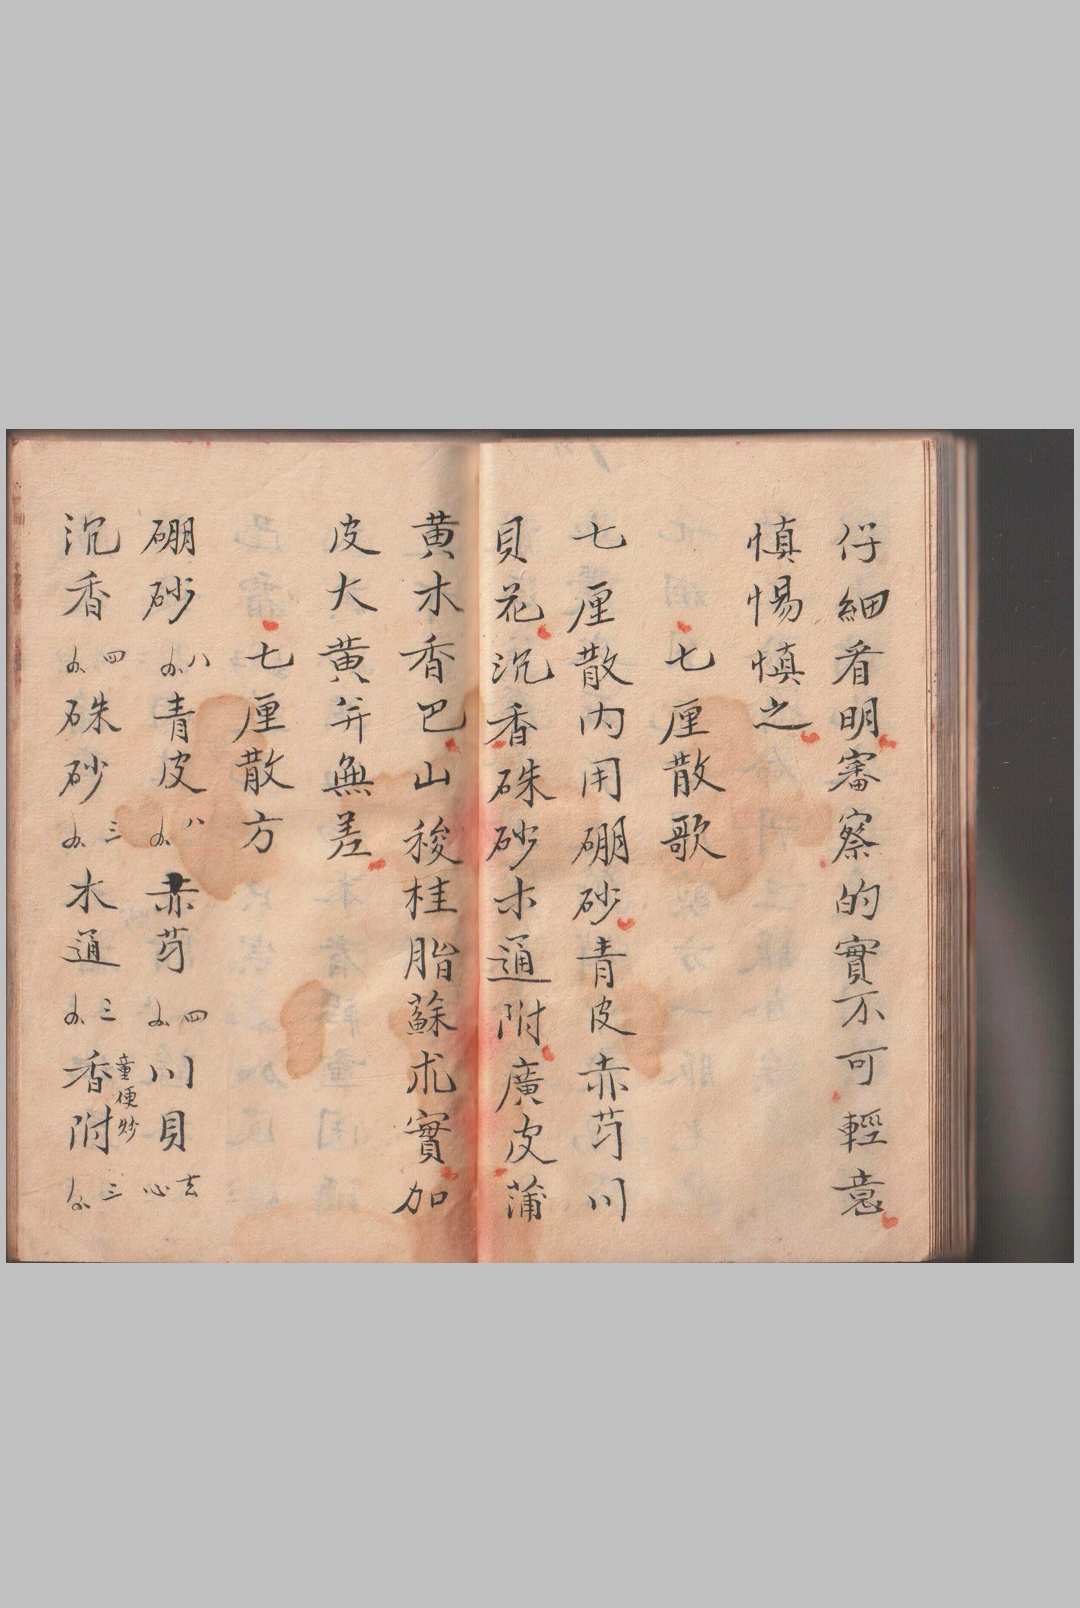 仔細看明審察的實不可輕意
慎惕慎之
七厘散歌
七厘散内用硼砂青皮赤芍川
貝花沉香硃砂木通附廣皮蒲
黄木香巴山稜桂脂蘇朮實加
皮大黄并無差
七厘散方
硼砂八青皮八赤芍四川貝去心
沉香四硃砂三木通三香附童便炒三